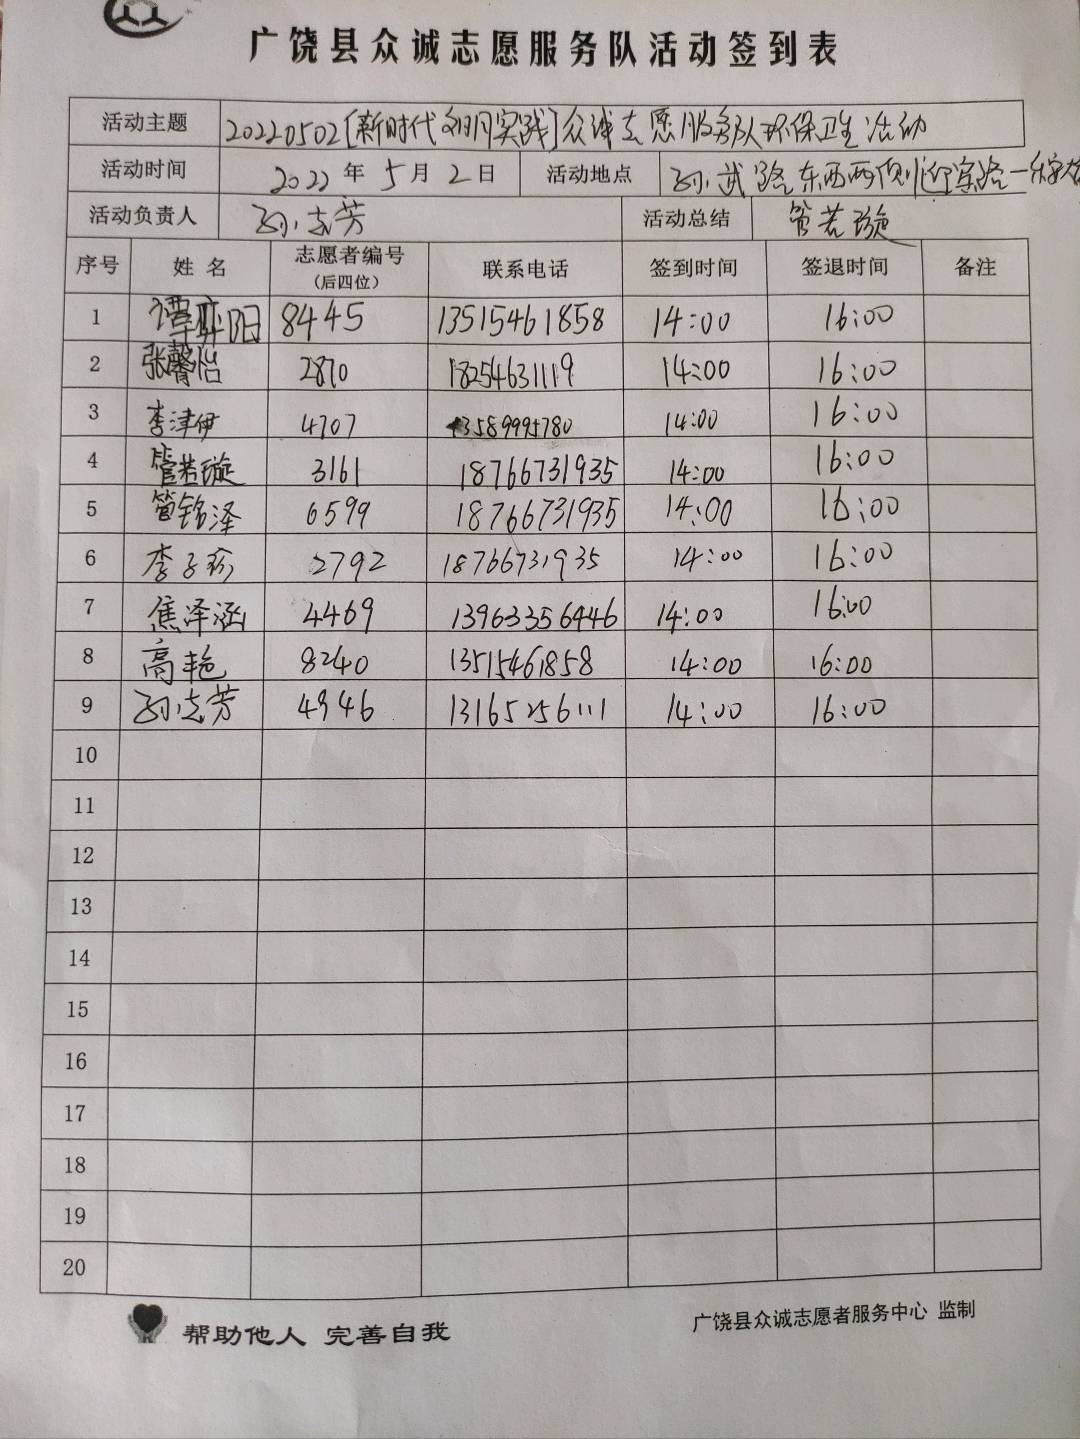 广饶县众诚志愿服务队活动签到表
活动主题 20220502[新时代文明实践]众诚志愿服务队环保卫生活动
活动时间 2022年5月2日 活动地点 孙武路东西两侧迎宾路一乐安
活动负责人 孙志芳 活动总结 管若璇
序号 姓名 志愿者编号（后四位） 联系电话 签到时间 签退时间 备注
1 谭弈阳 8445 13515461858 14:00 16:00
2 张馨怡 2870 18254631119 14:00 16:00
3 李津伊 4707 13589995780 14:00 16:00
4 管若璇 3161 18766731935 14:00 16:00
5 管铭泽 6599 18766731935 14:00 16:00
6 李子珍 2792 18766731935 14:00 16:00
7 焦泽涵 4469 13963356446 14:00 16:00
8 高艳 8240 13515461858 14:00 16:00
9 孙志芳 4946 13165256111 14:00 16:00
10
11
12
13
14
15
16
17
18
19
20
帮助他人 完善自我
广饶县众诚志愿者服务中心 监制